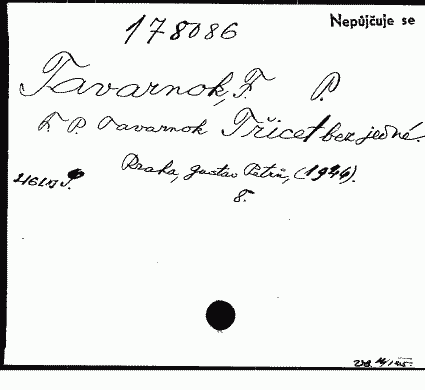 178086 Nepůjčuje se
Tavarnok, F. P.
F. P. Tavarnok Třicet bez jedné.
Praha, Gustav Petrů, (1946).
8.